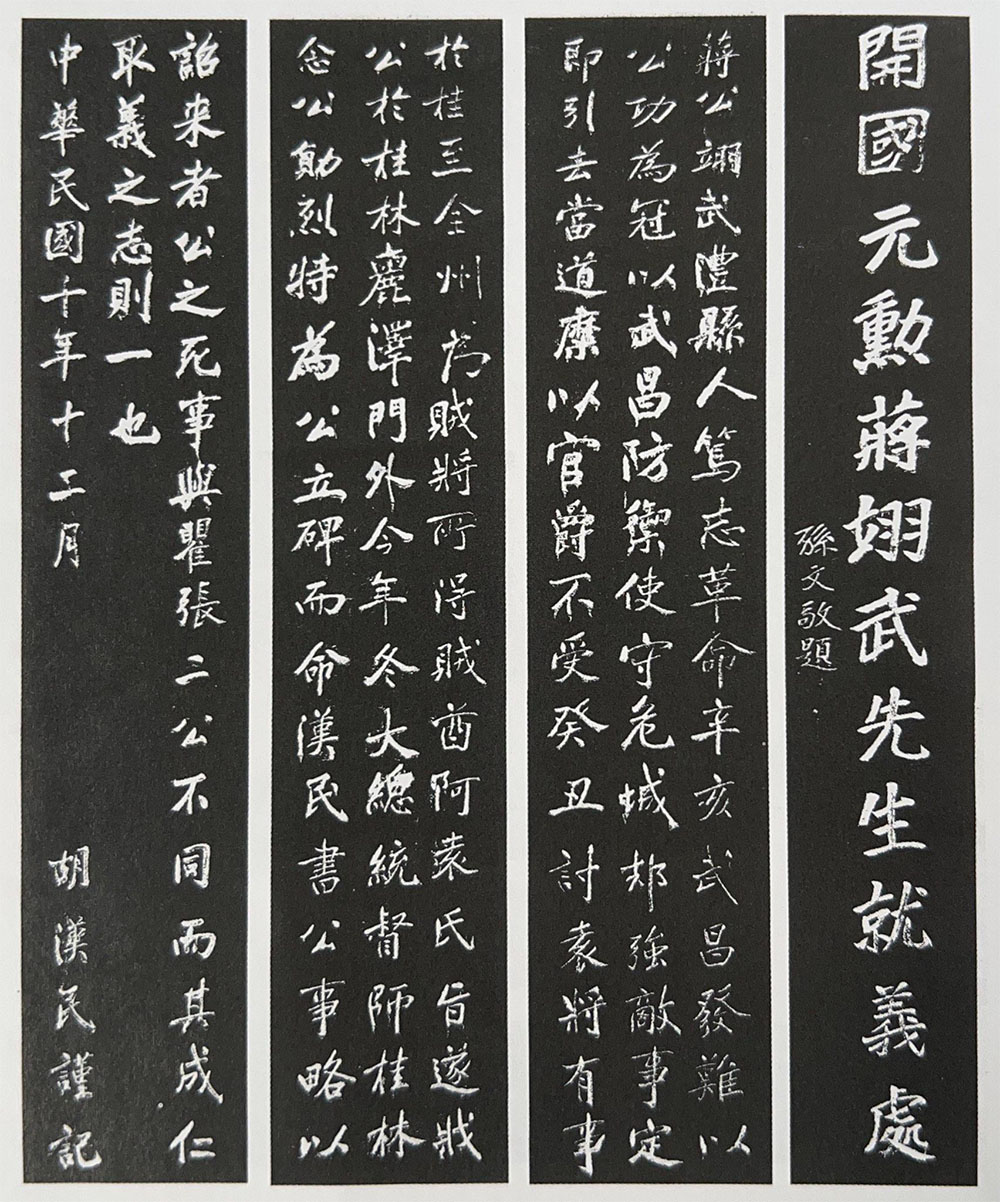 開國元勳蔣翊武先生就義處
孫文敬題
蔣公翊武澧縣人篤志革命辛亥武昌發難以
公功為冠以武昌防禦使守危城却強敵事定
即引去當道縻以官爵不受癸丑討袁將有事
於桂至全州為賊將所得賊酋阿袁氏旨遂戕
公於桂林麗澤門外今年冬大總統督師桂林
念公勛烈特為公立碑而命漢民書公事略以
詔来者公之死事與瞿張二公不同而其成仁
取義之志則一也
中華民國十年十二月 胡漢民謹記